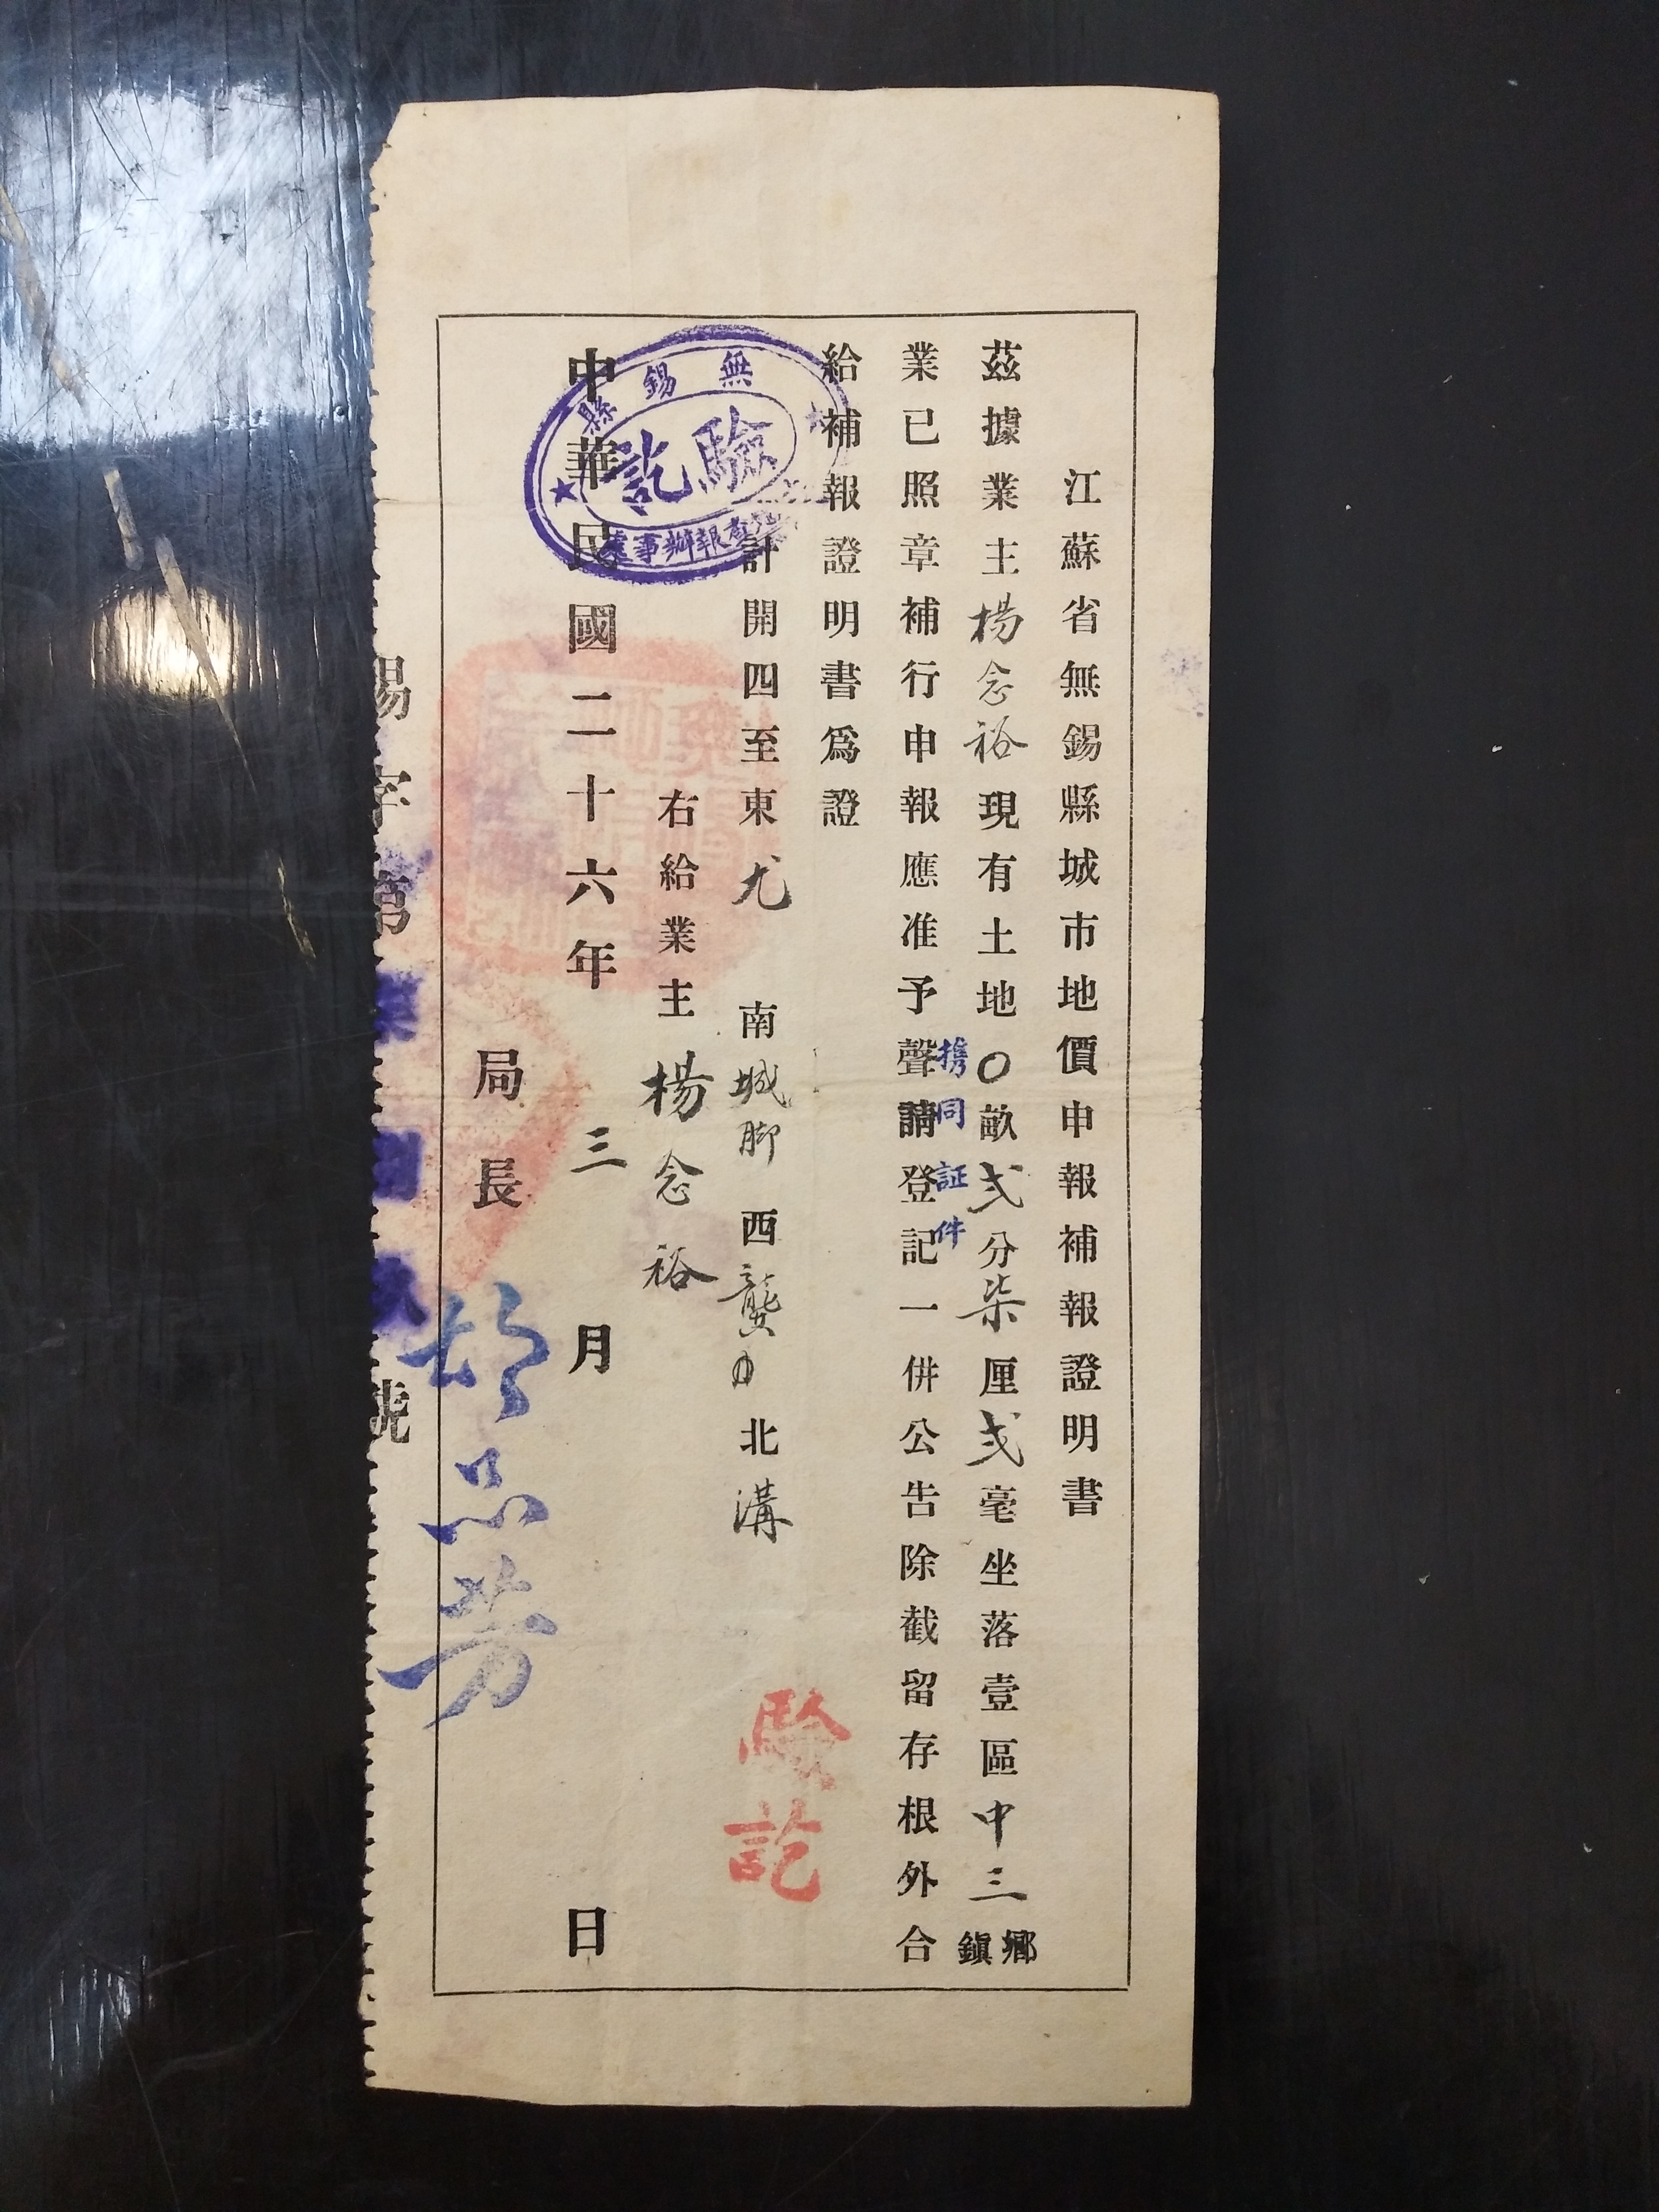 江蘇省無錫縣城市地價申報補報證明書
茲據業主楊念裕現有土地〇畝弍分柒厘弍毫坐落壹區中三鄉鎮
業已照章補行申報應准予聲請登記一併公告除截留存根外合
携同証件
給補報證明書爲證
計開四至東尤 南城脚 西龔 北溝
右給業主楊念裕
中華民國二十六年三月 日
局長
胡品芳
錫字第 號
無錫縣
驗訖
報辦事處
驗訖